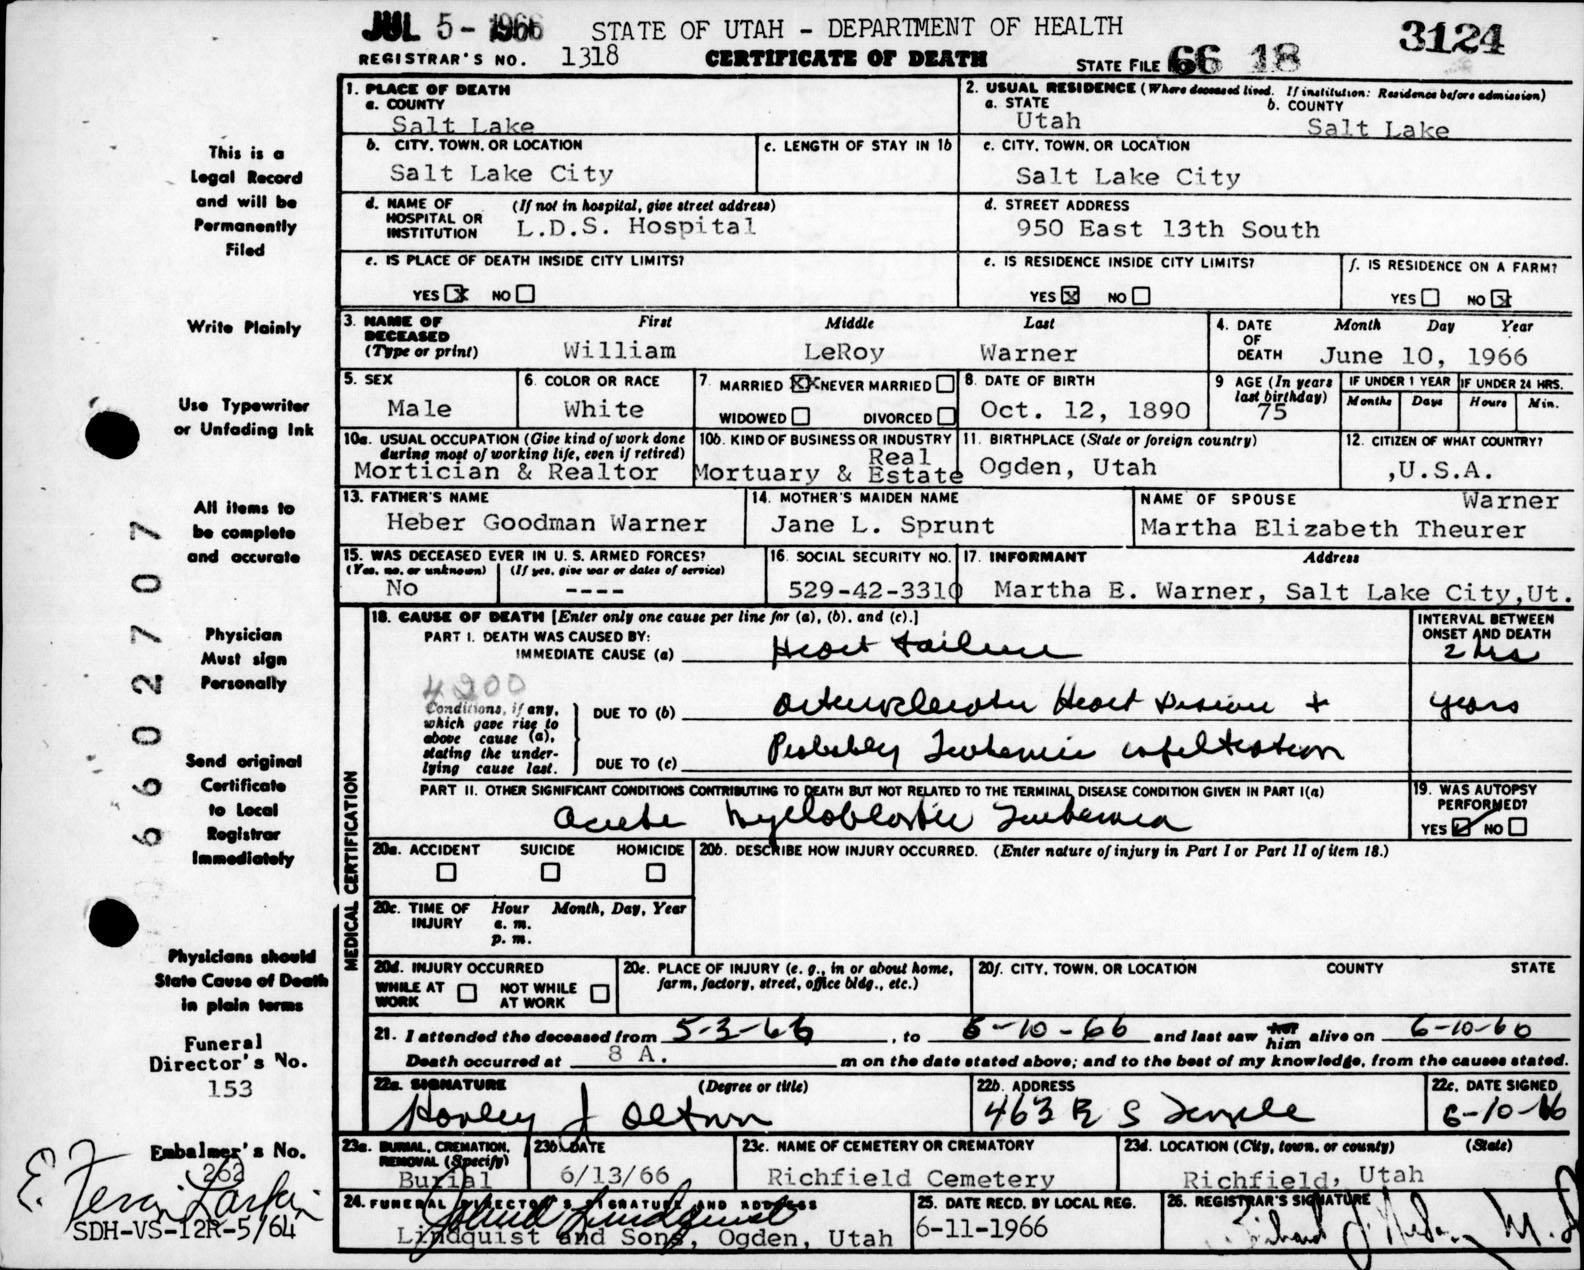 JUL 5 - 1966 STATE OF UTAH - DEPARTMENT OF HEALTH 3124
REGISTRAR'S NO. 1318 CERTIFICATE OF DEATH STATE FILE 66 18
1. PLACE OF DEATH
a. COUNTY
Salt Lake
2. USUAL RESIDENCE (Where deceased lived. If institution: Residence before admission)
a. STATE b. COUNTY
Utah Salt Lake
b. CITY, TOWN, OR LOCATION
Salt Lake City
c. LENGTH OF STAY IN 1b
c. CITY, TOWN, OR LOCATION
Salt Lake City
d. NAME OF HOSPITAL OR INSTITUTION (If not in hospital, give street address)
L.D.S. Hospital
d. STREET ADDRESS
950 East 13th South
e. IS PLACE OF DEATH INSIDE CITY LIMITS?
YES X NO
e. IS RESIDENCE INSIDE CITY LIMITS?
YES X NO
f. IS RESIDENCE ON A FARM?
YES NO X
3. NAME OF DECEASED (Type or print)
First Middle Last
William LeRoy Warner
4. DATE OF DEATH
Month Day Year
June 10, 1966
5. SEX
Male
6. COLOR OR RACE
White
7. MARRIED XX NEVER MARRIED
WIDOWED DIVORCED
8. DATE OF BIRTH
Oct. 12, 1890
9 AGE (In years last birthday)
75
IF UNDER 1 YEAR
Months Days
IF UNDER 24 HRS.
Hours Min.
10a. USUAL OCCUPATION (Give kind of work done during most of working life, even if retired)
Mortician & Realtor
10b. KIND OF BUSINESS OR INDUSTRY
Mortuary & Real Estate
11. BIRTHPLACE (State or foreign country)
Ogden, Utah
12. CITIZEN OF WHAT COUNTRY?
,U.S.A.
13. FATHER'S NAME
Heber Goodman Warner
14. MOTHER'S MAIDEN NAME
Jane L. Sprunt
NAME OF SPOUSE Warner
Martha Elizabeth Theurer
15. WAS DECEASED EVER IN U. S. ARMED FORCES?
(Yes, no, or unknown) (If yes, give war or dates of service)
No ----
16. SOCIAL SECURITY NO.
529-42-3310
17. INFORMANT Address
Martha E. Warner, Salt Lake City, Ut.
MEDICAL CERTIFICATION
18. CAUSE OF DEATH [Enter only one cause per line for (a), (b), and (c).]
PART I. DEATH WAS CAUSED BY:
IMMEDIATE CAUSE (a) Heart failure
INTERVAL BETWEEN ONSET AND DEATH
2 hrs
4200
Conditions, if any, which gave rise to above cause (a), stating the underlying cause last.
DUE TO (b) Arteriosclerotic Heart Disease + years
DUE TO (c) Probably Leukemic infiltration
PART II. OTHER SIGNIFICANT CONDITIONS CONTRIBUTING TO DEATH BUT NOT RELATED TO THE TERMINAL DISEASE CONDITION GIVEN IN PART I(a)
Acute Myeloblastic Leukemia
19. WAS AUTOPSY PERFORMED?
YES ✓ NO
20a. ACCIDENT SUICIDE HOMICIDE
20b. DESCRIBE HOW INJURY OCCURRED. (Enter nature of injury in Part I or Part II of item 18.)
20c. TIME OF INJURY Hour Month, Day, Year
a. m.
p. m.
20d. INJURY OCCURRED
WHILE AT WORK NOT WHILE AT WORK
20e. PLACE OF INJURY (e. g., in or about home, farm, factory, street, office bldg., etc.)
20f. CITY, TOWN, OR LOCATION COUNTY STATE
21. I attended the deceased from 5-3-66, to 6-10-66 and last saw her him alive on 6-10-66
Death occurred at 8 A. m on the date stated above; and to the best of my knowledge, from the causes stated.
22a. SIGNATURE (Degree or title)
22b. ADDRESS
463 E S Temple
22c. DATE SIGNED
6-10-66
23a. BURIAL, CREMATION, REMOVAL (Specify)
Burial
23b. DATE
6/13/66
23c. NAME OF CEMETERY OR CREMATORY
Richfield Cemetery
23d. LOCATION (City, town, or county) (State)
Richfield, Utah
24. FUNERAL DIRECTOR'S SIGNATURE AND ADDRESS
Lindquist
Lindquist and Sons, Ogden, Utah
25. DATE RECD. BY LOCAL REG.
6-11-1966
26. REGISTRAR'S SIGNATURE
This is a
Legal Record
and will be
Permanently
Filed
Write Plainly
Use Typewriter
or Unfading Ink
All items to
be complete
and accurate
Physician
Must sign
Personally
Send original
Certificate
to Local
Registrar
Immediately
Physicians should
State Cause of Death
in plain terms
Funeral
Director's No.
153
Embalmer's No.
262
E. Larkin
SDH-VS-12R-5/64
66027707